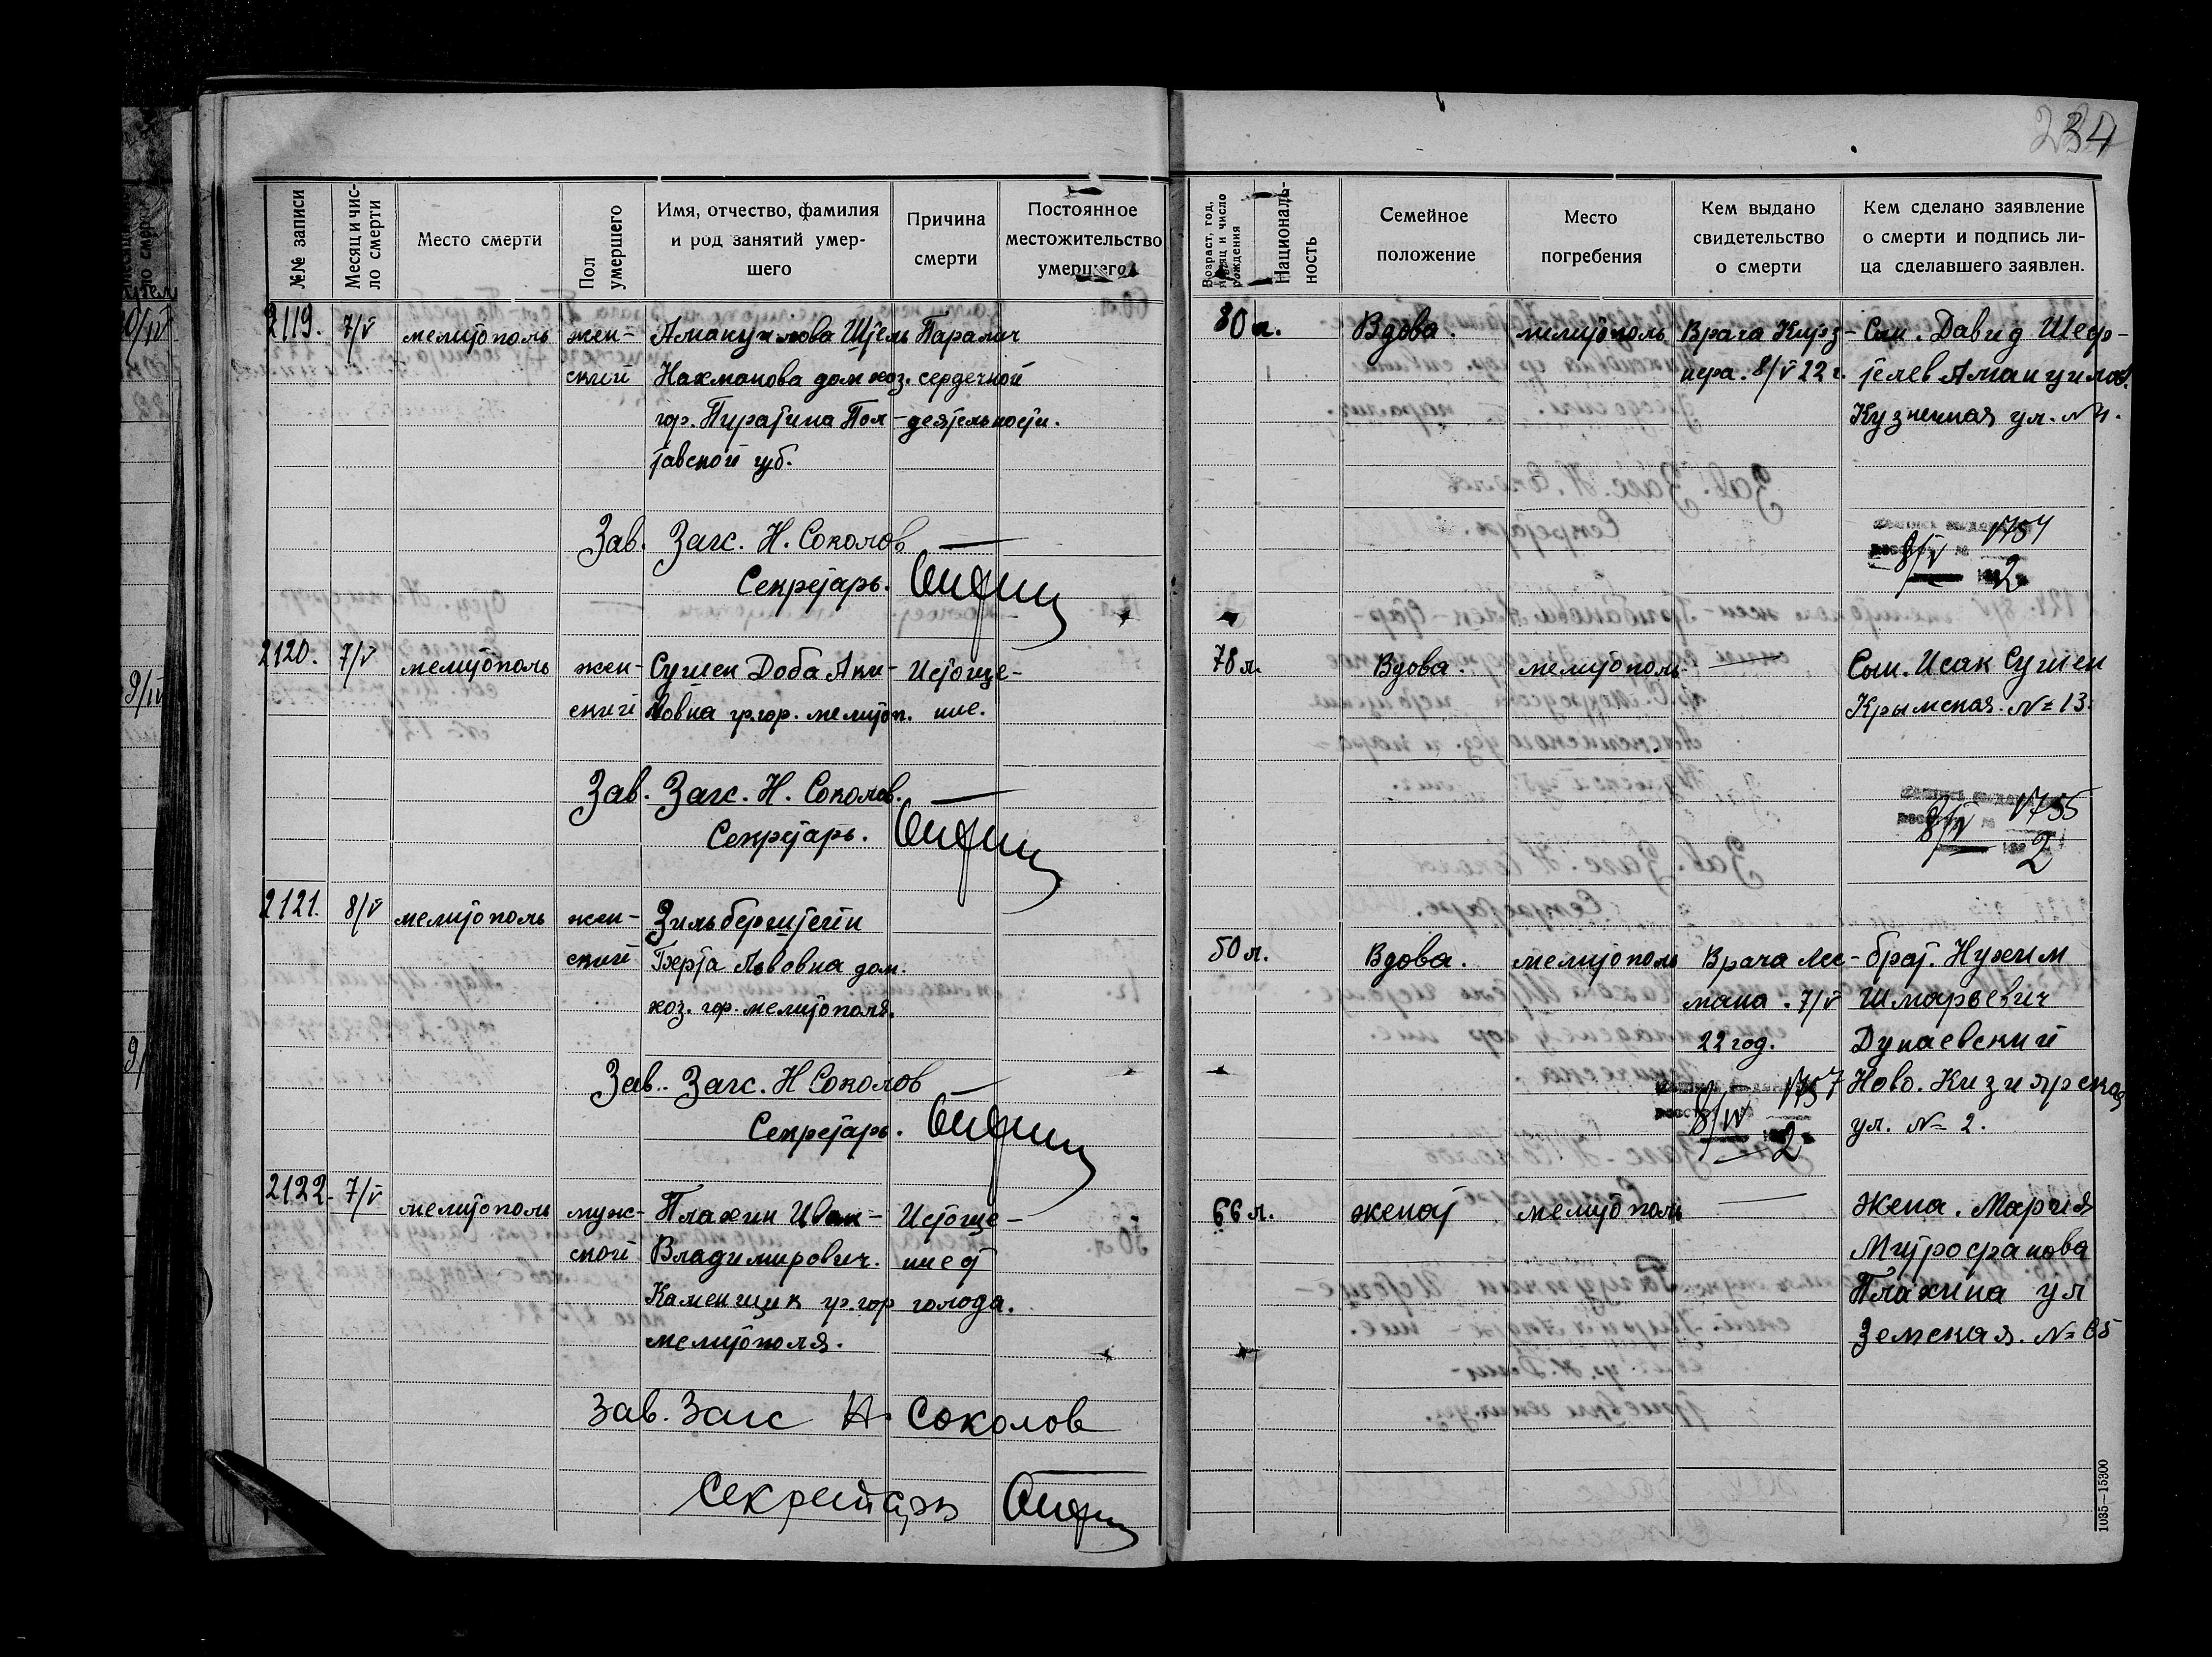 234
№№ записи
Месяц и чис-
ло смерти
Место смерти
Пол
умершего
Имя, отчество, фамилия
и род занятий умер-
шего
Причина
смерти
Постоянное
местожительство
умершего
Возраст, год,
месяц и число
рождения
Националь-
ность
Семейное
положение
Место
погребения
Кем выдано
свидетельство
о смерти
Кем сделано заявление
о смерти и подпись ли-
ца сделавшего заявлен.
2119. 7/V мелитополь жен- Штель Паралич 80 л. Вдова. мелитополь Врача Сын. Давид
ский Нахманова дом хоз. сердечной 8/V 22 г.
гор. Пирятина Пол- деятельности. Кузнечная ул. №
тавской губ.
Зав. Загс. Н. Соколов
1754
Секретарь. 8/V 2
2120. 7/V мелитополь жен- Сушен Доба Аки- Истоще- 78 л. Вдова. мелитополь. — Сын. Исак Сушен
ский мовна гр. гор. мелитоп. ние. Крымская. № 13.
Зав. Загс. Н. Соколов.
1755
Секретарь. 8/V 2
2121. 8/V мелитополь жен- Зильберштейн
ский Берта Львовна дом. 50 л. Вдова. мелитополь Врача Лес- брат. Нухим
хоз. гор. мелитополя. мана. 7/V Шмарьевич
22 год. Дунаевский
Зав. Загс. Н Соколов 1757 Ново. Кизиярская
Секретарь. 8/V 2 ул. № 2.
2122. 7/V мелитополь муж- Плахин Иван Истоще- 66 л. женат мелитополь — Жена. Мария
ской Владимирович. ние от Митрофанова
Каменщик гр. гор голода. Плахина ул
мелитополя. Земская. № 65
Зав. Загс Н. Соколов
Секретарь
1035—15300